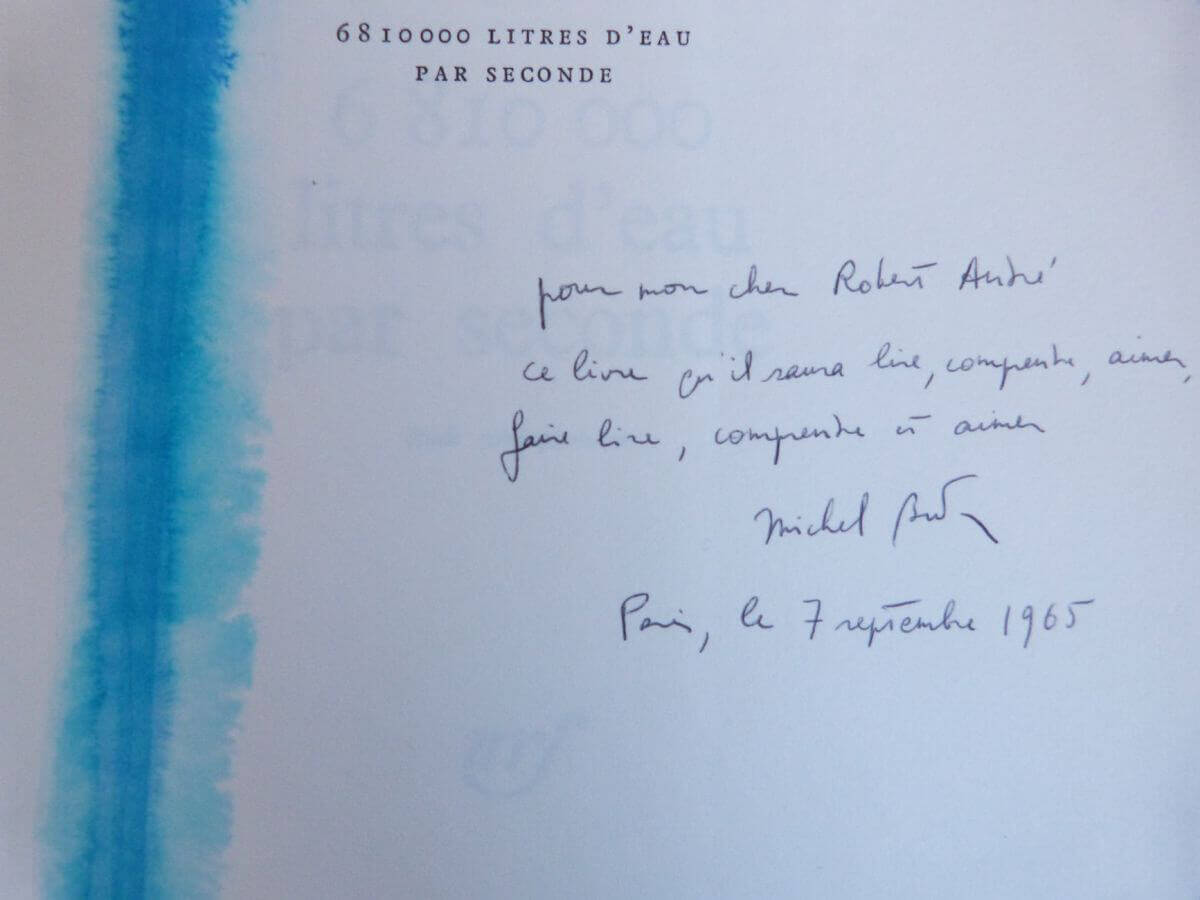 6810000 LITRES D'EAU
PAR SECONDE
6 810 000
litres d'eau
par seconde
nrf
pour mon cher Robert André
ce livre qu'il saura lire, comprendre, aimer,
faire lire, comprendre et aimer
Michel Butor
Paris, le 7 septembre 1965